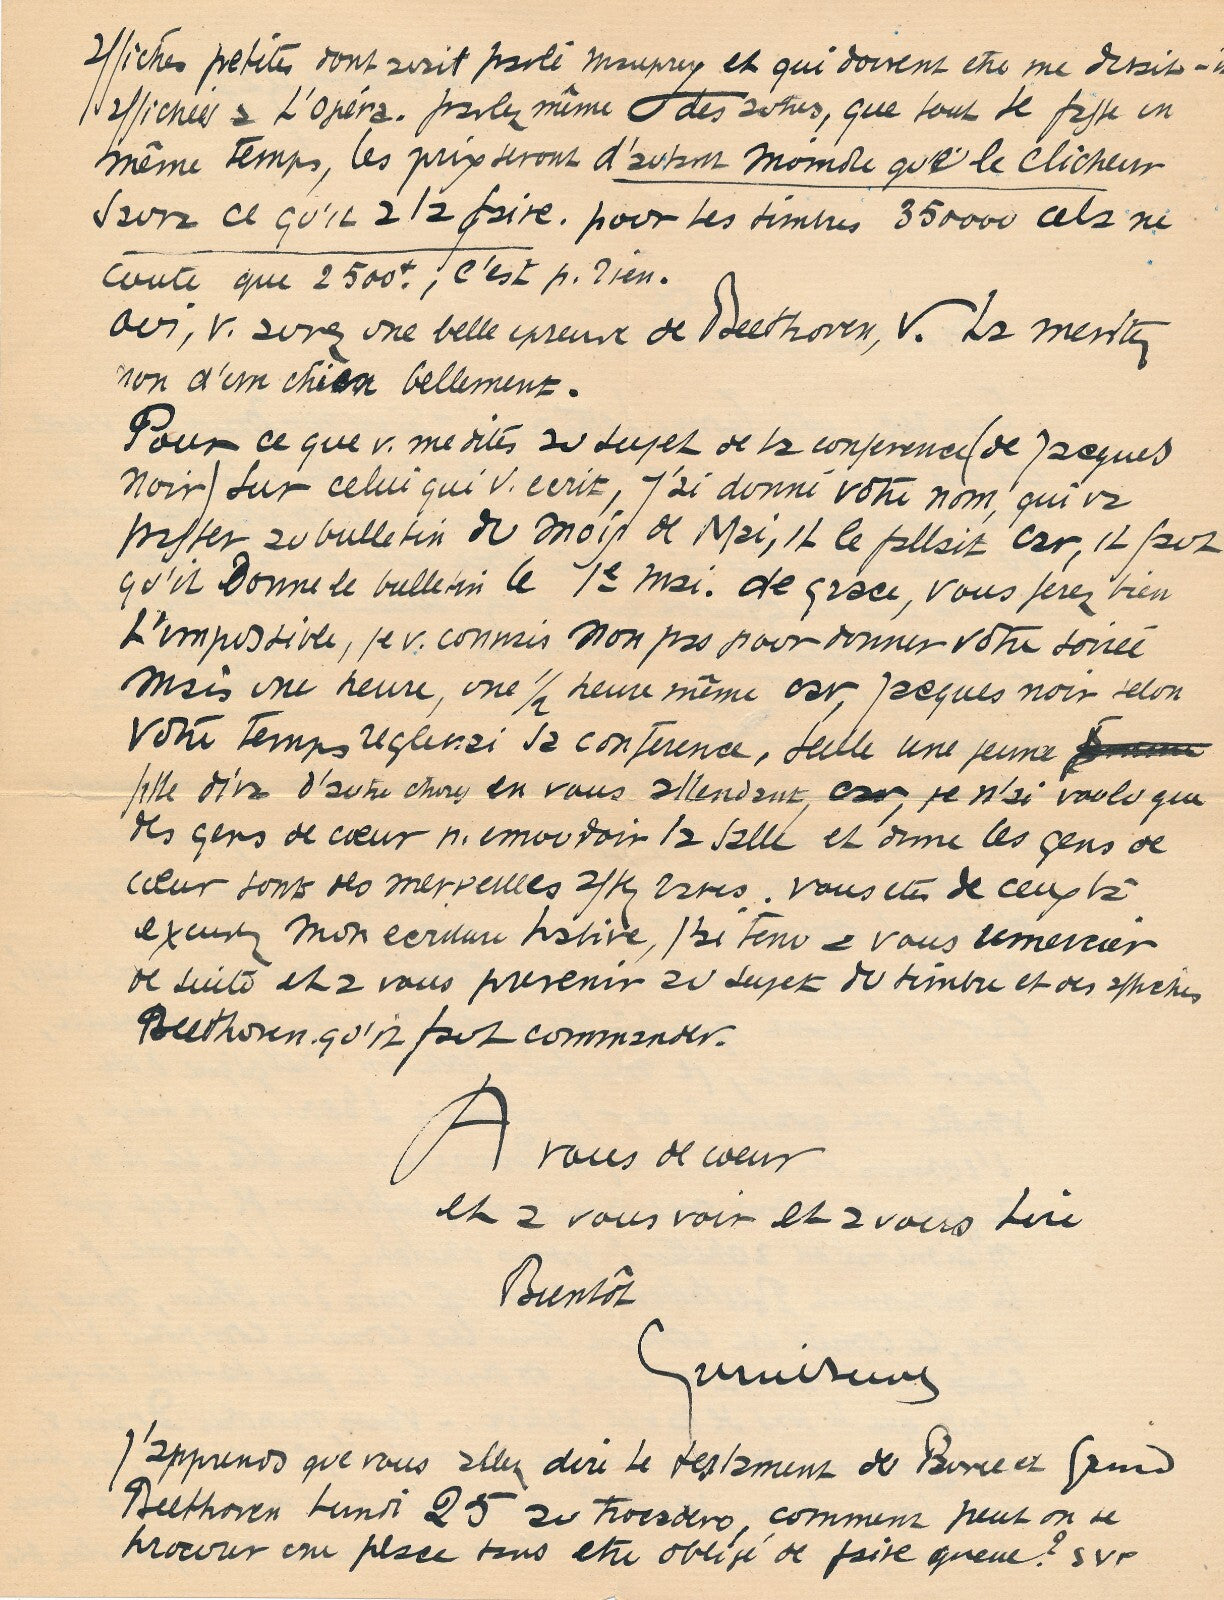 affiches petites dont avait parlé Mauprey et qui doivent etre me disait-i
affichées a L'Opéra. parlez même des autres, que tout se fasse en
même temps, les prix seront d'autant moindre que le clicheur
saura ce qu'il a à faire. pour les timbres 350000 cela ne
coute que 2500f, c'est p. rien.
Oui, v. aurez une belle epreuve de Beethoven, v. la meritez
non d'un chien bellement.
Pour ce que v. me dites au sujet de la conference (de Jacques
Noir) sur celui qui v. ecrit, j'ai donné votre nom, qui va
passer au bulletin du mois de Mai, il le fallait car, il faut
qu'il Donne le bulletin le 1e Mai. de grace, vous ferez bien
L'impossible, je v. connais non pas pour donner votre soireé
mais une heure, une 1/2 heure même car, Jacques noir selon
Votre temps reglerai sa conference, seule une jeune
fille dira d'autre choses en vous attendant, car, je n'ai voulu que
des gens de cœur p. emouvoir la salle et dame les gens de
cœur sont des merveilles assez rares. vous etes de ceux là
excusez mon ecriture hative, j'ai tenu a vous remercier
de suite et a vous prevenir au sujet du timbre et des affiches
Beethoven qu'il faut commander.
A vous de coeur
et a vous voir et a vous lire
Bientôt
J'apprends que vous allez dire le testament de et
Beethoven Lundi 25 au Trocadero, comment peut on se
procurer une place sans etre obligé de faire queue? SVP